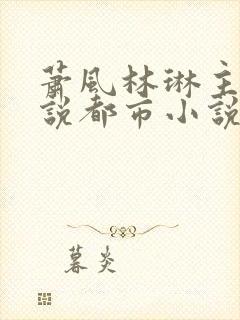 萧風林琳主
説都市小説
暮炎